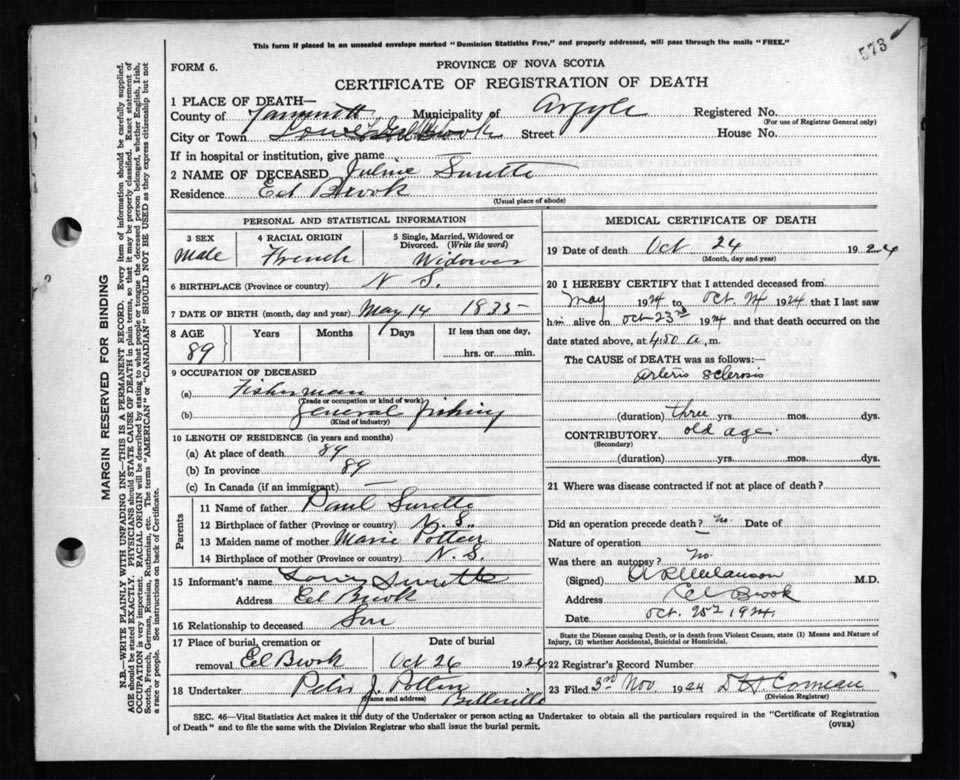 This form if placed in an unsealed envelope marked "Dominion Statistics Free," and properly addressed, will pass through the mails "FREE."
573
FORM 6.
PROVINCE OF NOVA SCOTIA
CERTIFICATE OF REGISTRATION OF DEATH
1 PLACE OF DEATH—
County of Yarmouth Municipality of Argyle Registered No.
(For use of Registrar General only)
City or Town Lower Eel Brook Street House No.
If in hospital or institution, give name
2 NAME OF DECEASED Juline Surette
Residence Eel Brook
(Usual place of abode)
PERSONAL AND STATISTICAL INFORMATION
3 SEX 4 RACIAL ORIGIN 5 Single, Married, Widowed or Divorced. (Write the word)
Male French Widower
6 BIRTHPLACE (Province or country) N S.
7 DATE OF BIRTH (month, day and year) May 14 1835
8 AGE Years Months Days If less than one day,
89 hrs. or min.
9 OCCUPATION OF DECEASED
(a) Fisherman
(Trade or occupation or kind of work)
(b) general fishing
(Kind of industry)
10 LENGTH OF RESIDENCE (in years and months)
(a) At place of death 89
(b) In province 89
(c) In Canada (if an immigrant) —
Parents
11 Name of father Paul Surette
12 Birthplace of father (Province or country) N. S.
13 Maiden name of mother Marie Pottier
14 Birthplace of mother (Province or country) N. S
15 Informant's name Louis Surette
Address Eel Brook
16 Relationship to deceased Son
17 Place of burial, cremation or Date of burial
removal Eel Brook Oct 26 1924
18 Undertaker Peter J. Pottier
(Name and address) Belleville
MEDICAL CERTIFICATE OF DEATH
19 Date of death Oct 24 1924
(Month, day and year)
20 I HEREBY CERTIFY that I attended deceased from
May 1924 to Oct. 24 1924 that I last saw
him alive on Oct 23rd 1924 and that death occurred on the
date stated above, at 4.50 a. m.
The CAUSE OF DEATH was as follows:—
Arterio Sclerosis
(duration) three yrs. mos. dys.
CONTRIBUTORY old age.
(Secondary)
(duration) yrs. mos. dys.
21 Where was disease contracted if not at place of death?
Did an operation precede death? No. Date of
Nature of operation
Was there an autopsy? No.
(Signed) Melanson M.D.
Address Eel Brook
Date Oct. 25 1924
State the Disease causing Death, or in death from Violent Causes, state (1) Means and Nature of Injury, (2) whether Accidental, Suicidal or Homicidal.
22 Registrar's Record Number
23 Filed 3rd Nov 1924 Comeau
(Division Registrar)
SEC. 46—Vital Statistics Act makes it the duty of the Undertaker or person acting as Undertaker to obtain all the particulars required in the "Certificate of Registration
of Death" and to file the same with the Division Registrar who shall issue the burial permit. (OVER)
MARGIN RESERVED FOR BINDING
N.B.—WRITE PLAINLY WITH UNFADING INK—THIS IS A PERMANENT RECORD. Every item of information should be carefully supplied.
AGE should be stated EXACTLY. PHYSICIANS should STATE CAUSE OF DEATH in plain terms, so that it may be properly classified. Exact statement of
OCCUPATION is very important. RACIAL ORIGIN will be described by stating to what people or tongue the deceased person belonged, whether English, Irish,
Scotch, French, German, Russian, Ruthenian, etc. The terms "AMERICAN" or "CANADIAN" SHOULD NOT BE USED as they express citizenship but not
a race or people. See instructions on back of Certificate.